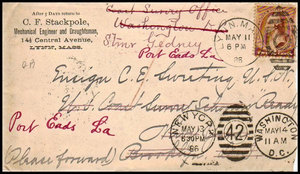 After 5 Days return to
C. F. Stackpole,
Mechanical Engineer and Draughtsman,
14½ Central Avenue,
LYNN, MASS.
Coast Survey Office
Washington
Str Gedney
Port Eads La
LYNN, M
MAY 11
6 PM
86
Ensign C. E.
U.S. Coast Survey
Port Eads La
NEW YORK
MAY 13
630PM
86
42
WASHINGTON
MAY 14
11 AM
D.C.
Please forward